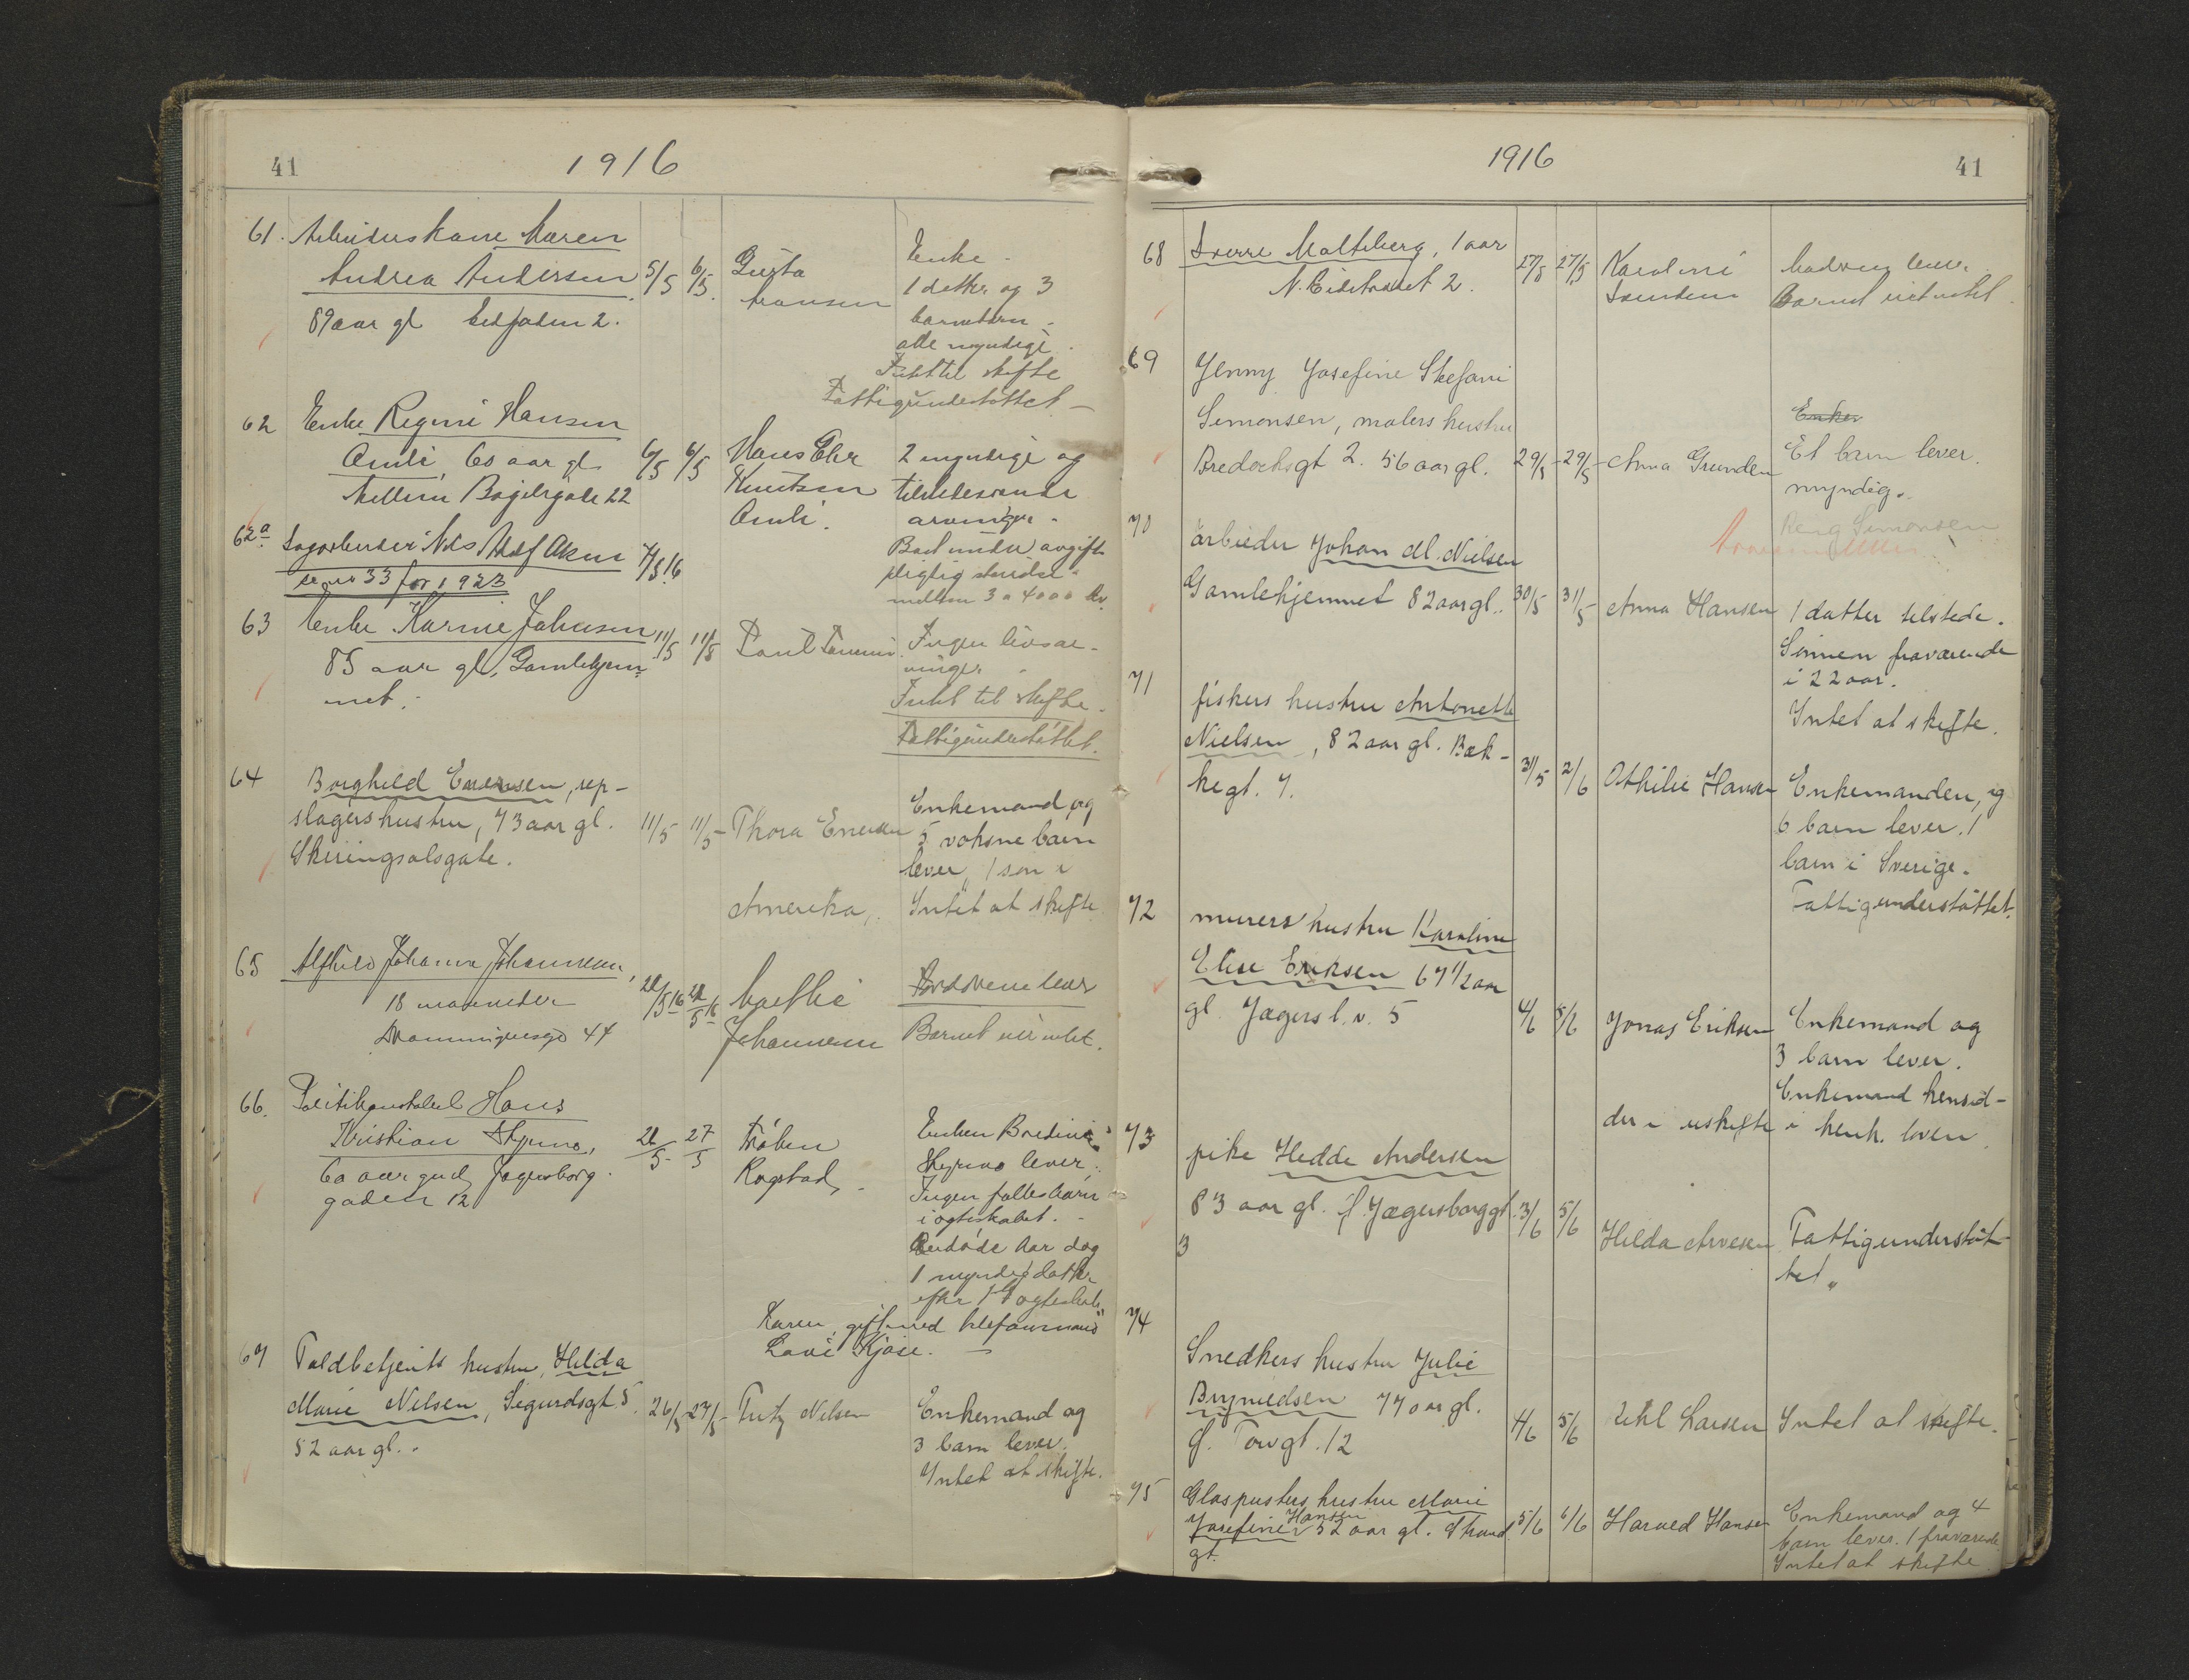 41
1916
61. Arbeiderskone Maren
Andrea Andersen 5/5 6/5. Gusta
89 aar gl
Enke -
1 datter og 3
barnebarn -
alle myndige.
Intet til skifte
Fattigunderstøttet -
62 Enke Regine Hansen
Omli, 60 aar gl 6/5 6/5 Hans Chr
Bøgelsgate 22 Knutsen
Omli.
2 myndige og
tilstedeværende
arvinger.
62a Nils Adolf 7/5.16
se nr 33 for 1923
Bad under avgifts
pligtig
mellem 3 a 4000 kr.
63 Enke Karine Johansen 11/5 11/5 Paul
85 aar gl, Gamlehjem-
met.
Ingen livsar-
vinger.
Intet til skifte.
Fattigunderstøttet.
64 Borghild Evensen, rep-
slagers hustru, 73 aar gl. 11/5 11/5 Thora Evensen
Skiringsalsgate.
Enkemand og
5 voksne barn
lever, 1 søn i
Amerika, Intet at skifte
65 Alfhild Johanne Johannesen,
18 maaneder
Dronningensgd 44
Johannesen
Forældrene lever
Barnet eier intet.
66. Politikonstabel Hans
Kristian 27/5
60 aar gml, Jegersborg-
gaden 12
Rogstad
Enken
lever.
Ingen fællesbarn
i ægteskabet.
Avdøde har dog
1 myndig datter
efter 1ste ægteskab
Karen, gift med
67 Toldbetjents hustru, Hilda
Marie Nilsen, Sigurdsgt. 5. 26/5 27/5 Fritz Nilsen
52 aar gl.
Enkemand og
3 barn lever.
Intet at skifte.
1916
41
68 Sverre Malteberg, 1 aar 27/5 27/5 Karoline
2.
Moderen lever.
Barnet eiet intet.
69 Jenny Josefine Stefani
Simonsen, malers hustru
Bredochsgt 2. 56 aar gl. 29/5 29/5 Anna Grunden
Enken
Et barn lever.
myndig.
Simonsen
70 arbeider Johan M. Nielsen
Gamlehjemmet 82 aar gl. 30/5 31/5 Anna Hansen 1 datter tilstede.
Sønnen fraværende
i 22 aar.
Intet at skifte.
71 fiskers hustru Antonette
Nielsen, 82 aar gl. Bæk-
kegt. 7. 31/5 2/6 Othilie Hansen Enkemanden, og
6 barn lever. 1
barn i Sverige.
Fattigunderstøttet.
72 murers hustru Karoline
Elise Eriksen 67 1/2 aar
gl. Jægersb.v. 5 4/6 5/6 Jonas Eriksen Enkemand og
3 barn lever.
Enkemand hensid-
der i uskifte i henh. loven.
73 pike Hedda Andersen
83 aar gl. Jægersborggt. 3/6 5/6
3 Hilda Arvesen Fattigunderstøt-
tet.
74 Snedkers hustru Julie
Brynildsen 77 aar gl. 4/6 5/6 Larsen Intet at skifte.
Torvgt. 12
75 Glaspusters hustru Marie
Josefine Hansen 52 aar gl. Strand- 5/6 6/6 Harald Hansen Enkemand og 4
gt.
barn lever. 1 fraværende.
Intet at skifte